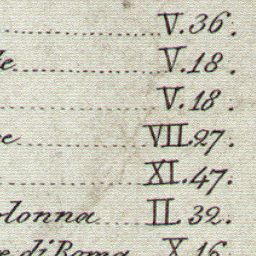 V. 36.
V. 18.
V. 18.
VII. 27.
XI. 47.
olonna II. 32.
di Roma X. 16